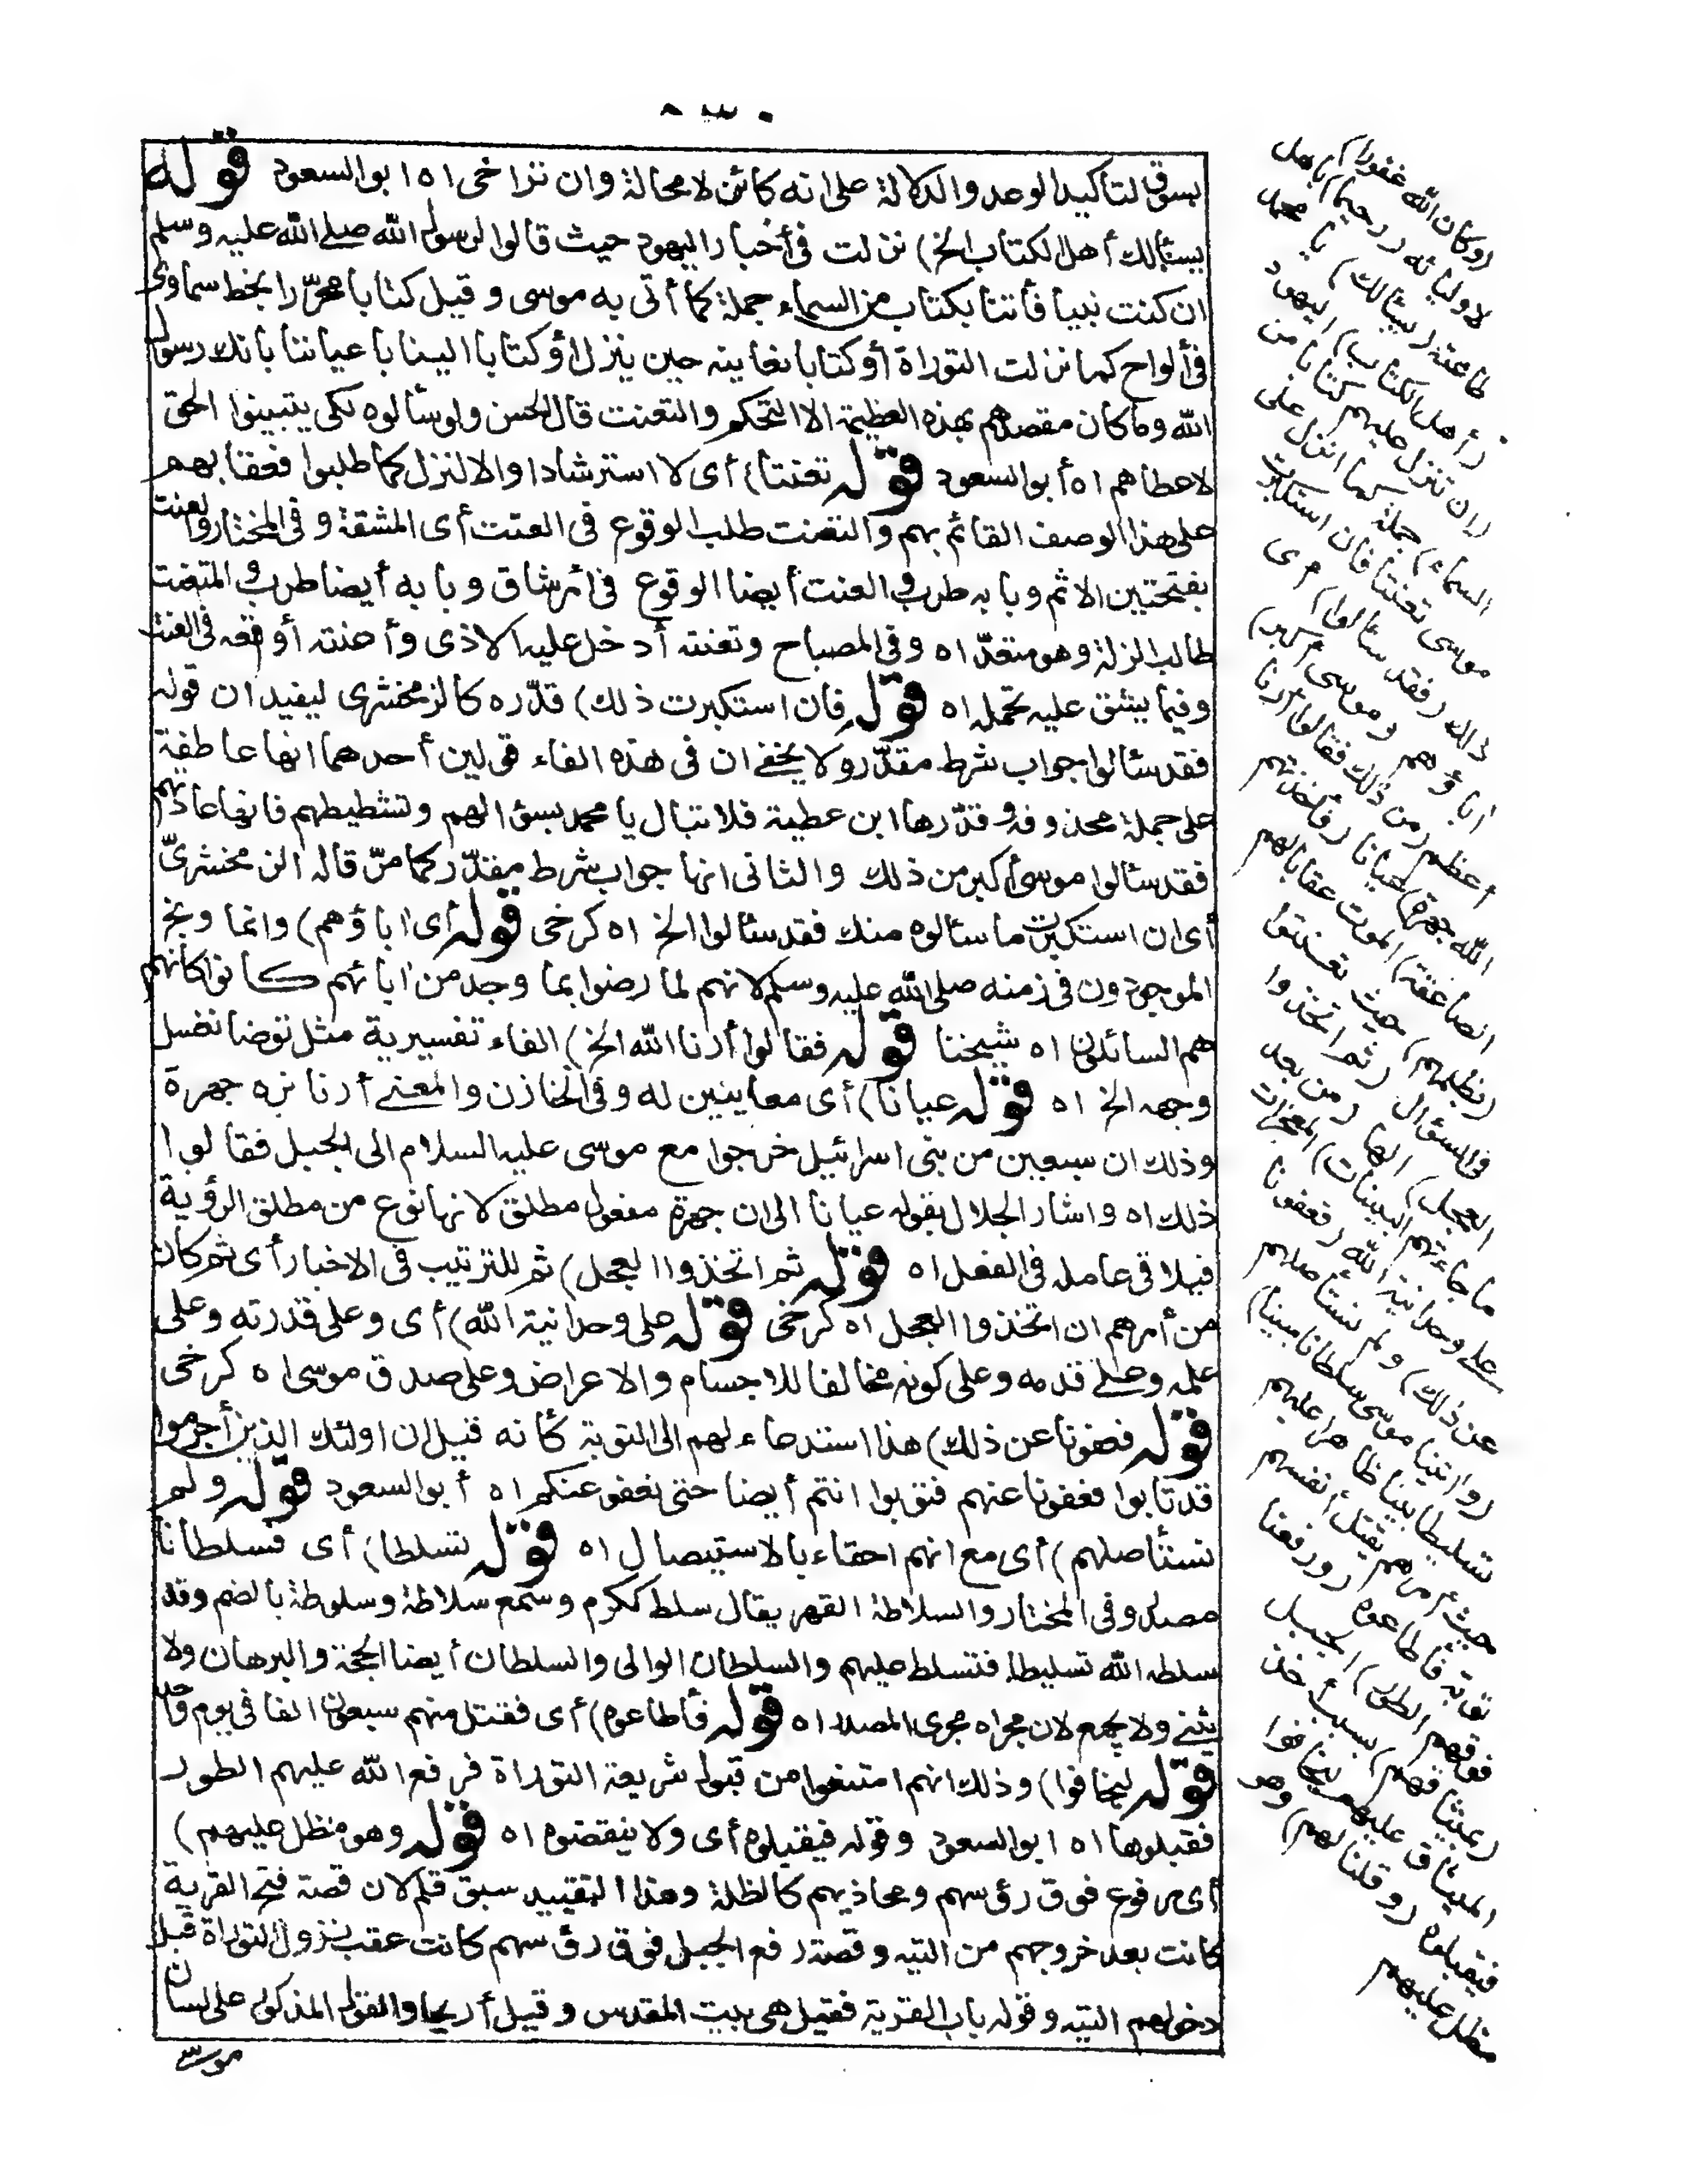 ٥٣٠
بسوق لتأكيد الوعد والدلالة على انه كائن لا محالة وان تراخى اه ابو السعود قوله
يسئالك أهل الكتاب الخ) نزلت فى أحبار اليهود حيث قالوا لرسول الله صلى الله عليه وسلم
ان كنت نبيا فأتنا بكتاب من السماء جملة كما أتى به موسى وقيل كتابا محرّرا بخط سماوى
فى ألواح كما نزلت التوراة أو كتابا نعاينه حين ينزل أو كتابا الينا باعياننا بانك رسول
الله وما كان مقصدهم بهذه العظيمة الا التحكم والتعنت قال الحسن ولو سألوه لكى يتبينوا الحق
لاعطاهم اه أبو السعود قوله تعنتا) أى لا استرشادا والا لنزل كما طلبوا فعقابهم
على هذا الوصف القائم بهم والتعنت طلب الوقوع فى العنت أى المشقة وفى المختار والعنت
بفتحتين الاثم وبابه طرب والعنت أيضا الوقوع فى أمر شاق وبابه أيضا طرب والمتعنت
طالب الزلة وهو متعدّ اه وفى المصباح وتعنته أدخل عليه الاذى وأعنته أوقعه فى العنت
وفيما يشق عليه تحمله اه قوله فان استكبرت ذلك) قدّره كالزمخشرى ليفيد ان قوله
فقد سئالوا جواب شرط مقدّر ولا يخفى ان فى هذه الفاء قولين أحدهما انها عاطفة
على جملة محذوفة وقدّرها ابن عطية فلا تبال يا محمد بسؤالهم وتشطيطهم فانها عادتهم
فقد سئالوا موسى أكبر من ذلك والثانى انها جواب شرط مقدّر كما مرّ قاله الزمخشرىّ
أى ان استكبرت ما سئالوه منك فقد سئالوا الخ اه كرخى قوله أى اباؤهم) وانما وبخ
الموجودون فى زمنه صلى الله عليه وسلم لانهم لما رضوا بما وجد من ابائهم كانوا كأنهم
هم السائلون اه شيخنا قوله فقالوا أرنا الله الخ) الفاء تفسيرية مثل توضا نغسل
وجهه الخ اه قوله عيانا) أى معاينين له وفى الخازن والمعنى أرنا نره جهرة
وذلك ان سبعين من بنى اسرائيل خرجوا مع موسى عليه السلام الى الجبل فقالوا
ذلك اه واشار الجلال بقوله عيانا الى ان جهرة مفعول مطلق لانها نوع من مطلق الرؤية
فيلاقى عامله فى الفعل اه قوله ثم اتخذوا العجل) ثم للترتيب فى الاخبار أى ثم كان
من أمرهم ان اتخذوا العجل اه كرخى قوله على وحدانية الله) أى وعلى قدرته وعلى
علمه وعلى قدمه وعلى كونه مخالفا للاجسام والاعراض وعلى صدق موسى اه كرخى
قوله فعفونا عن ذلك) هذا استدعاء لهم الى التوبة كأنه قيل ان اولئك الذين أجرموا
قد تابوا فعفونا عنهم فتوبوا انتم أيضا حتى نعفو عنكم اه أبو السعود قوله ولم
نستأصلهم) أى مع انهم احقاء بالاستيصال اه قوله تسلطا) أى فسلطانا
مصدر وفى المختار والسلاطة القهر يقال سلط ككرم وسمع سلاطة وسلوطة بالضم وقد
سلطه الله تسليطا فتسلط عليهم والسلطان الوالى والسلطان أيضا الحجة والبرهان ولا
يثنى ولا يجمع لان مجراه مجرى المصدر اه قوله فأطاعوه) أى فقتل منهم سبعون الفا فى يوم واحد
قوله ليخافوا) وذلك انهم امتنعوا من قبول شريعة التوراة فرفع الله عليهم الطور
فقبلوها اه ابو السعود وقوله فيقبلوه أى ولا ينقضوه اه قوله وهو مظل عليهم)
أى مرفوع فوق رؤسهم ومحاذيهم كالظلة وهذا التقييد سبق قلم لان قصة فتح القرية
كانت بعد خروجهم من التيه وقصة رفع الجبل فوق رؤسهم كانت عقب نزول التوراة قبل
دخولهم التيه وقوله باب القرية فقيل هى بيت المقدس وقيل أريحا والقول المذكور على لسان
موسى
(وكان الله غفورا)
لاوليائه (رحيما) باهل
طاعته (يسئالك) يا محمد
(أهل الكتاب) اليهود
(ان تنزل عليهم كتابا من
السماء) جملة كما انزل على
موسى تعنتا فان استكبرت
ذلك (فقد سئالوا) أى
اباؤهم (موسى أكبر)
أعظم (من ذلك فقالوا أرنا
الله جهرة) عيانا (فأخذتهم
الصاعقة) الموت عقابا لهم
(بظلمهم) حيث تعنتوا
فى السؤال (ثم اتخذوا
العجل) الها (من بعد
ما جاءتهم البينات) المعجزات
على وحدانية الله (فعفونا
عن ذلك) ولم نستأصلهم
(واتينا موسى سلطانا مبينا)
تسليطا بينا ظاهرا عليهم
حيث أمرهم بقتل أنفسهم
توبة فأطاعوه (ورفعنا
فوقهم الطور) الجبل
(بميثاقهم) بسبب أخذ
الميثاق عليهم ليخافوا
فيقبلوه (وقلنا لهم) وهو
مظل عليهم